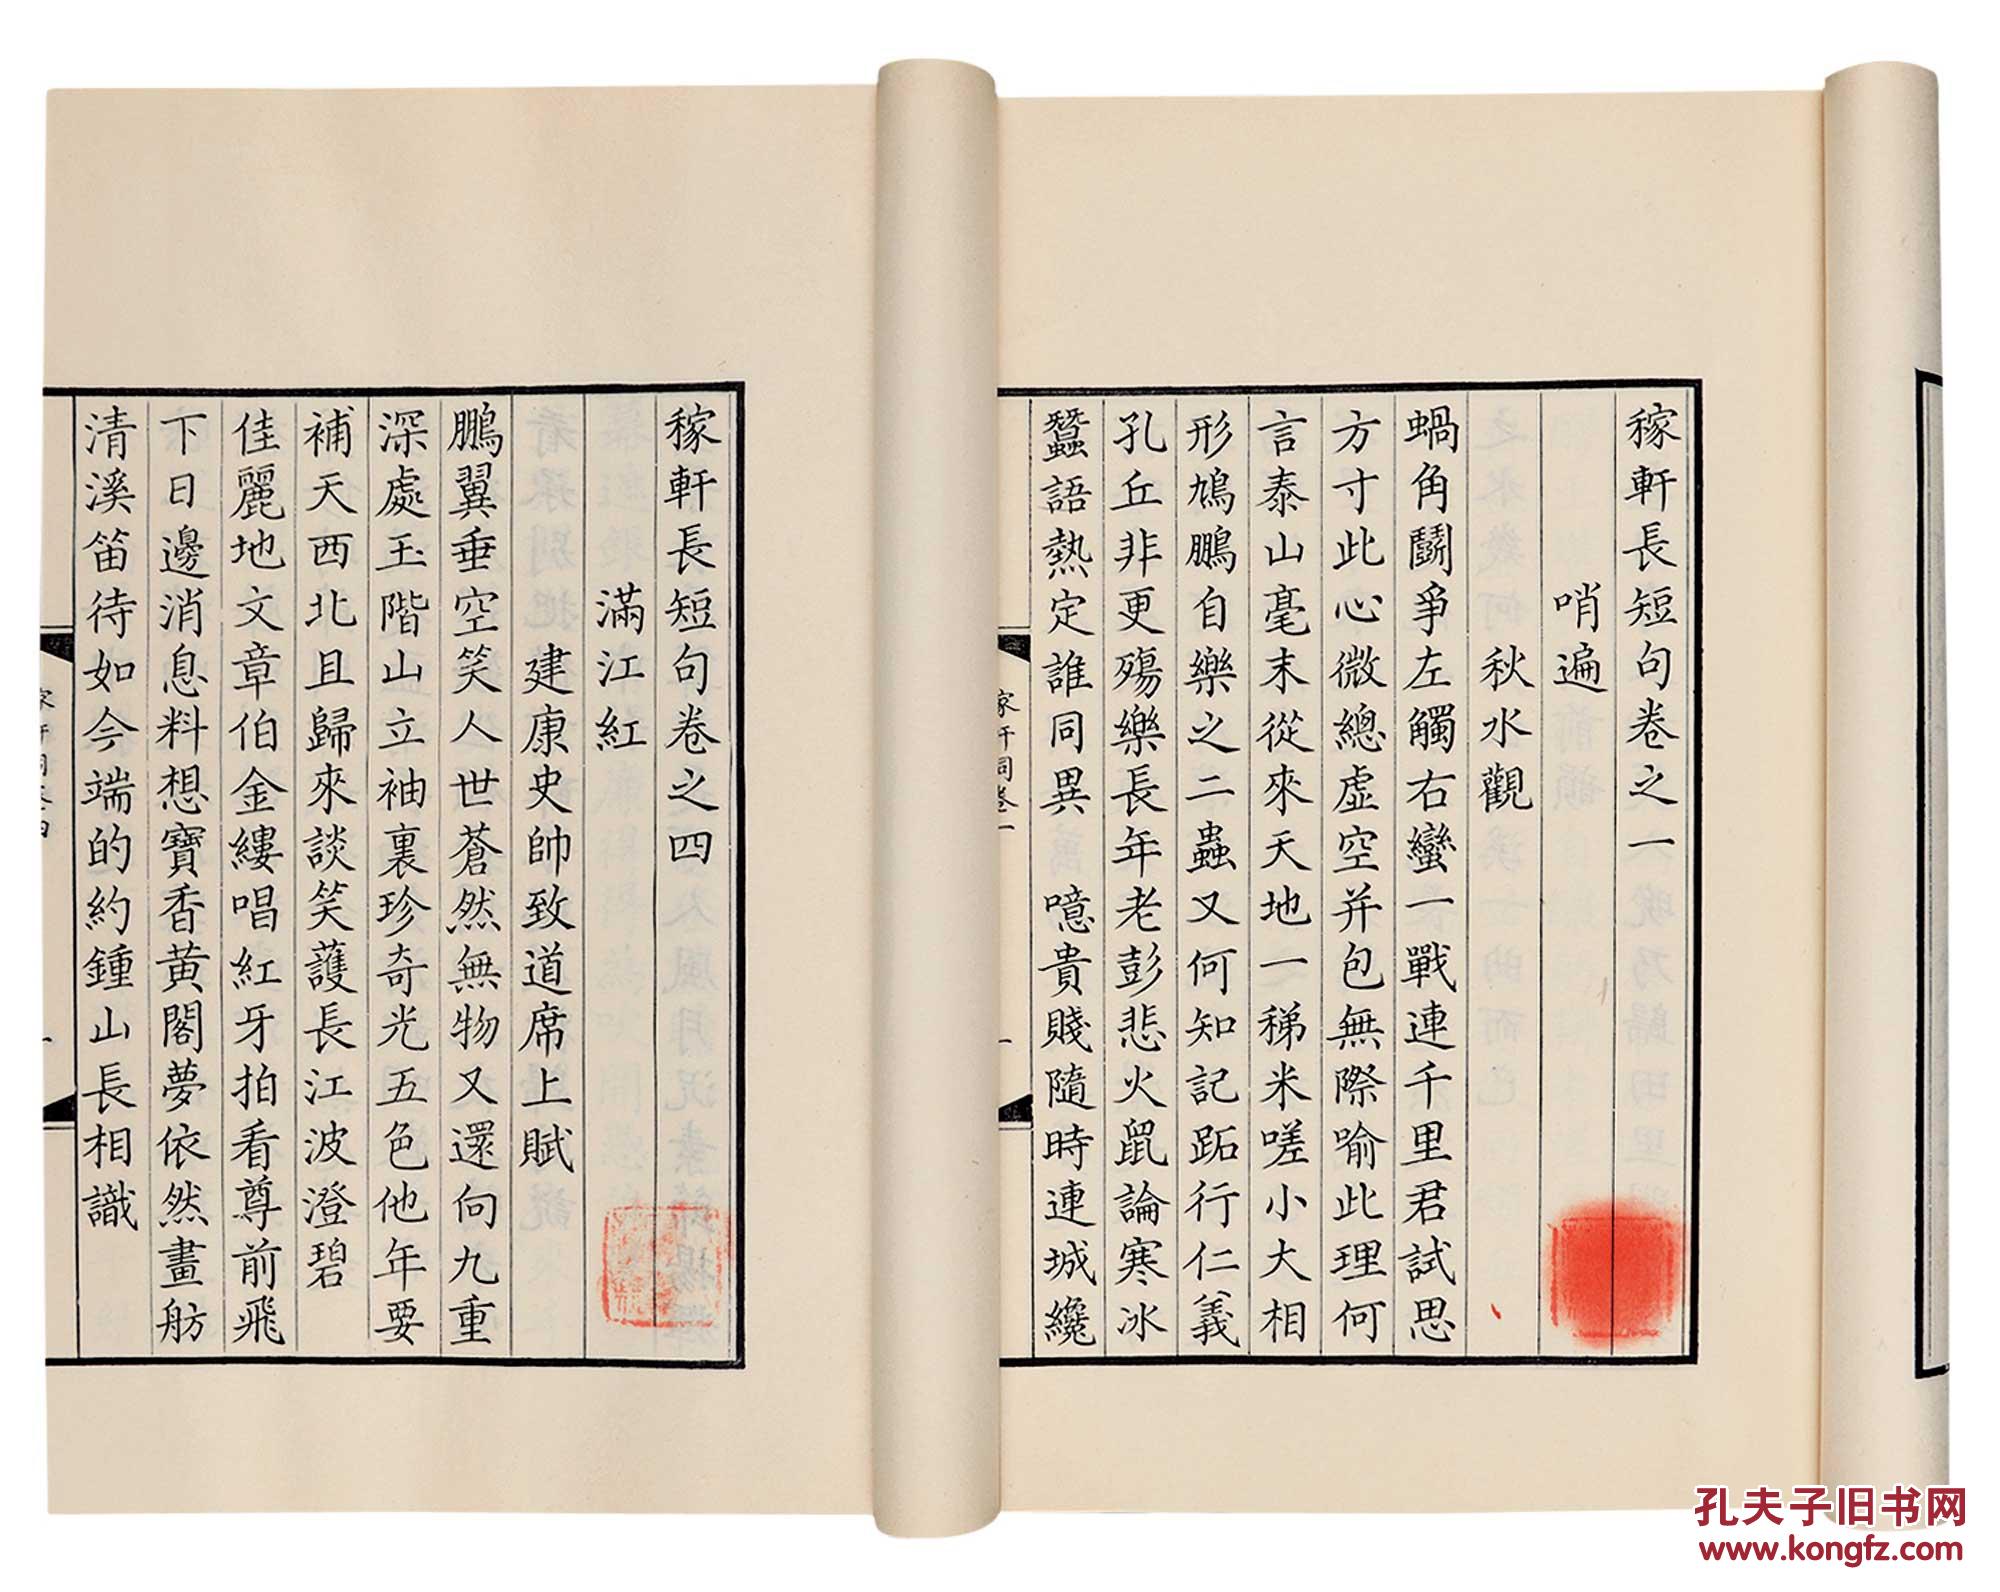 稼軒長短句卷之一
哨遍
秋水觀
蝸角鬭爭左觸右蠻一戰連千里君試思
方寸此心微總虛空并包無際喻此理何
言泰山毫末從來天地一稊米嗟小大相
形鳩鵬自樂之二蟲又何知記跖行仁義
孔丘非更殤樂長年老彭悲火鼠論寒冰
蠶語熱定誰同異 噫貴賤隨時連城纔
稼軒長短句卷之四
滿江紅
建康史帥致道席上賦
鵬翼垂空笑人世蒼然無物又還向九重
深處玉階山立袖裏珍奇光五色他年要
補天西北且歸來談笑護長江波澄碧
佳麗地文章伯金縷唱紅牙拍看尊前飛
下日邊消息料想寶香黃閣夢依然畫舫
清溪笛待如今端的約鍾山長相識
孔夫子旧书网
www.kongfz.com